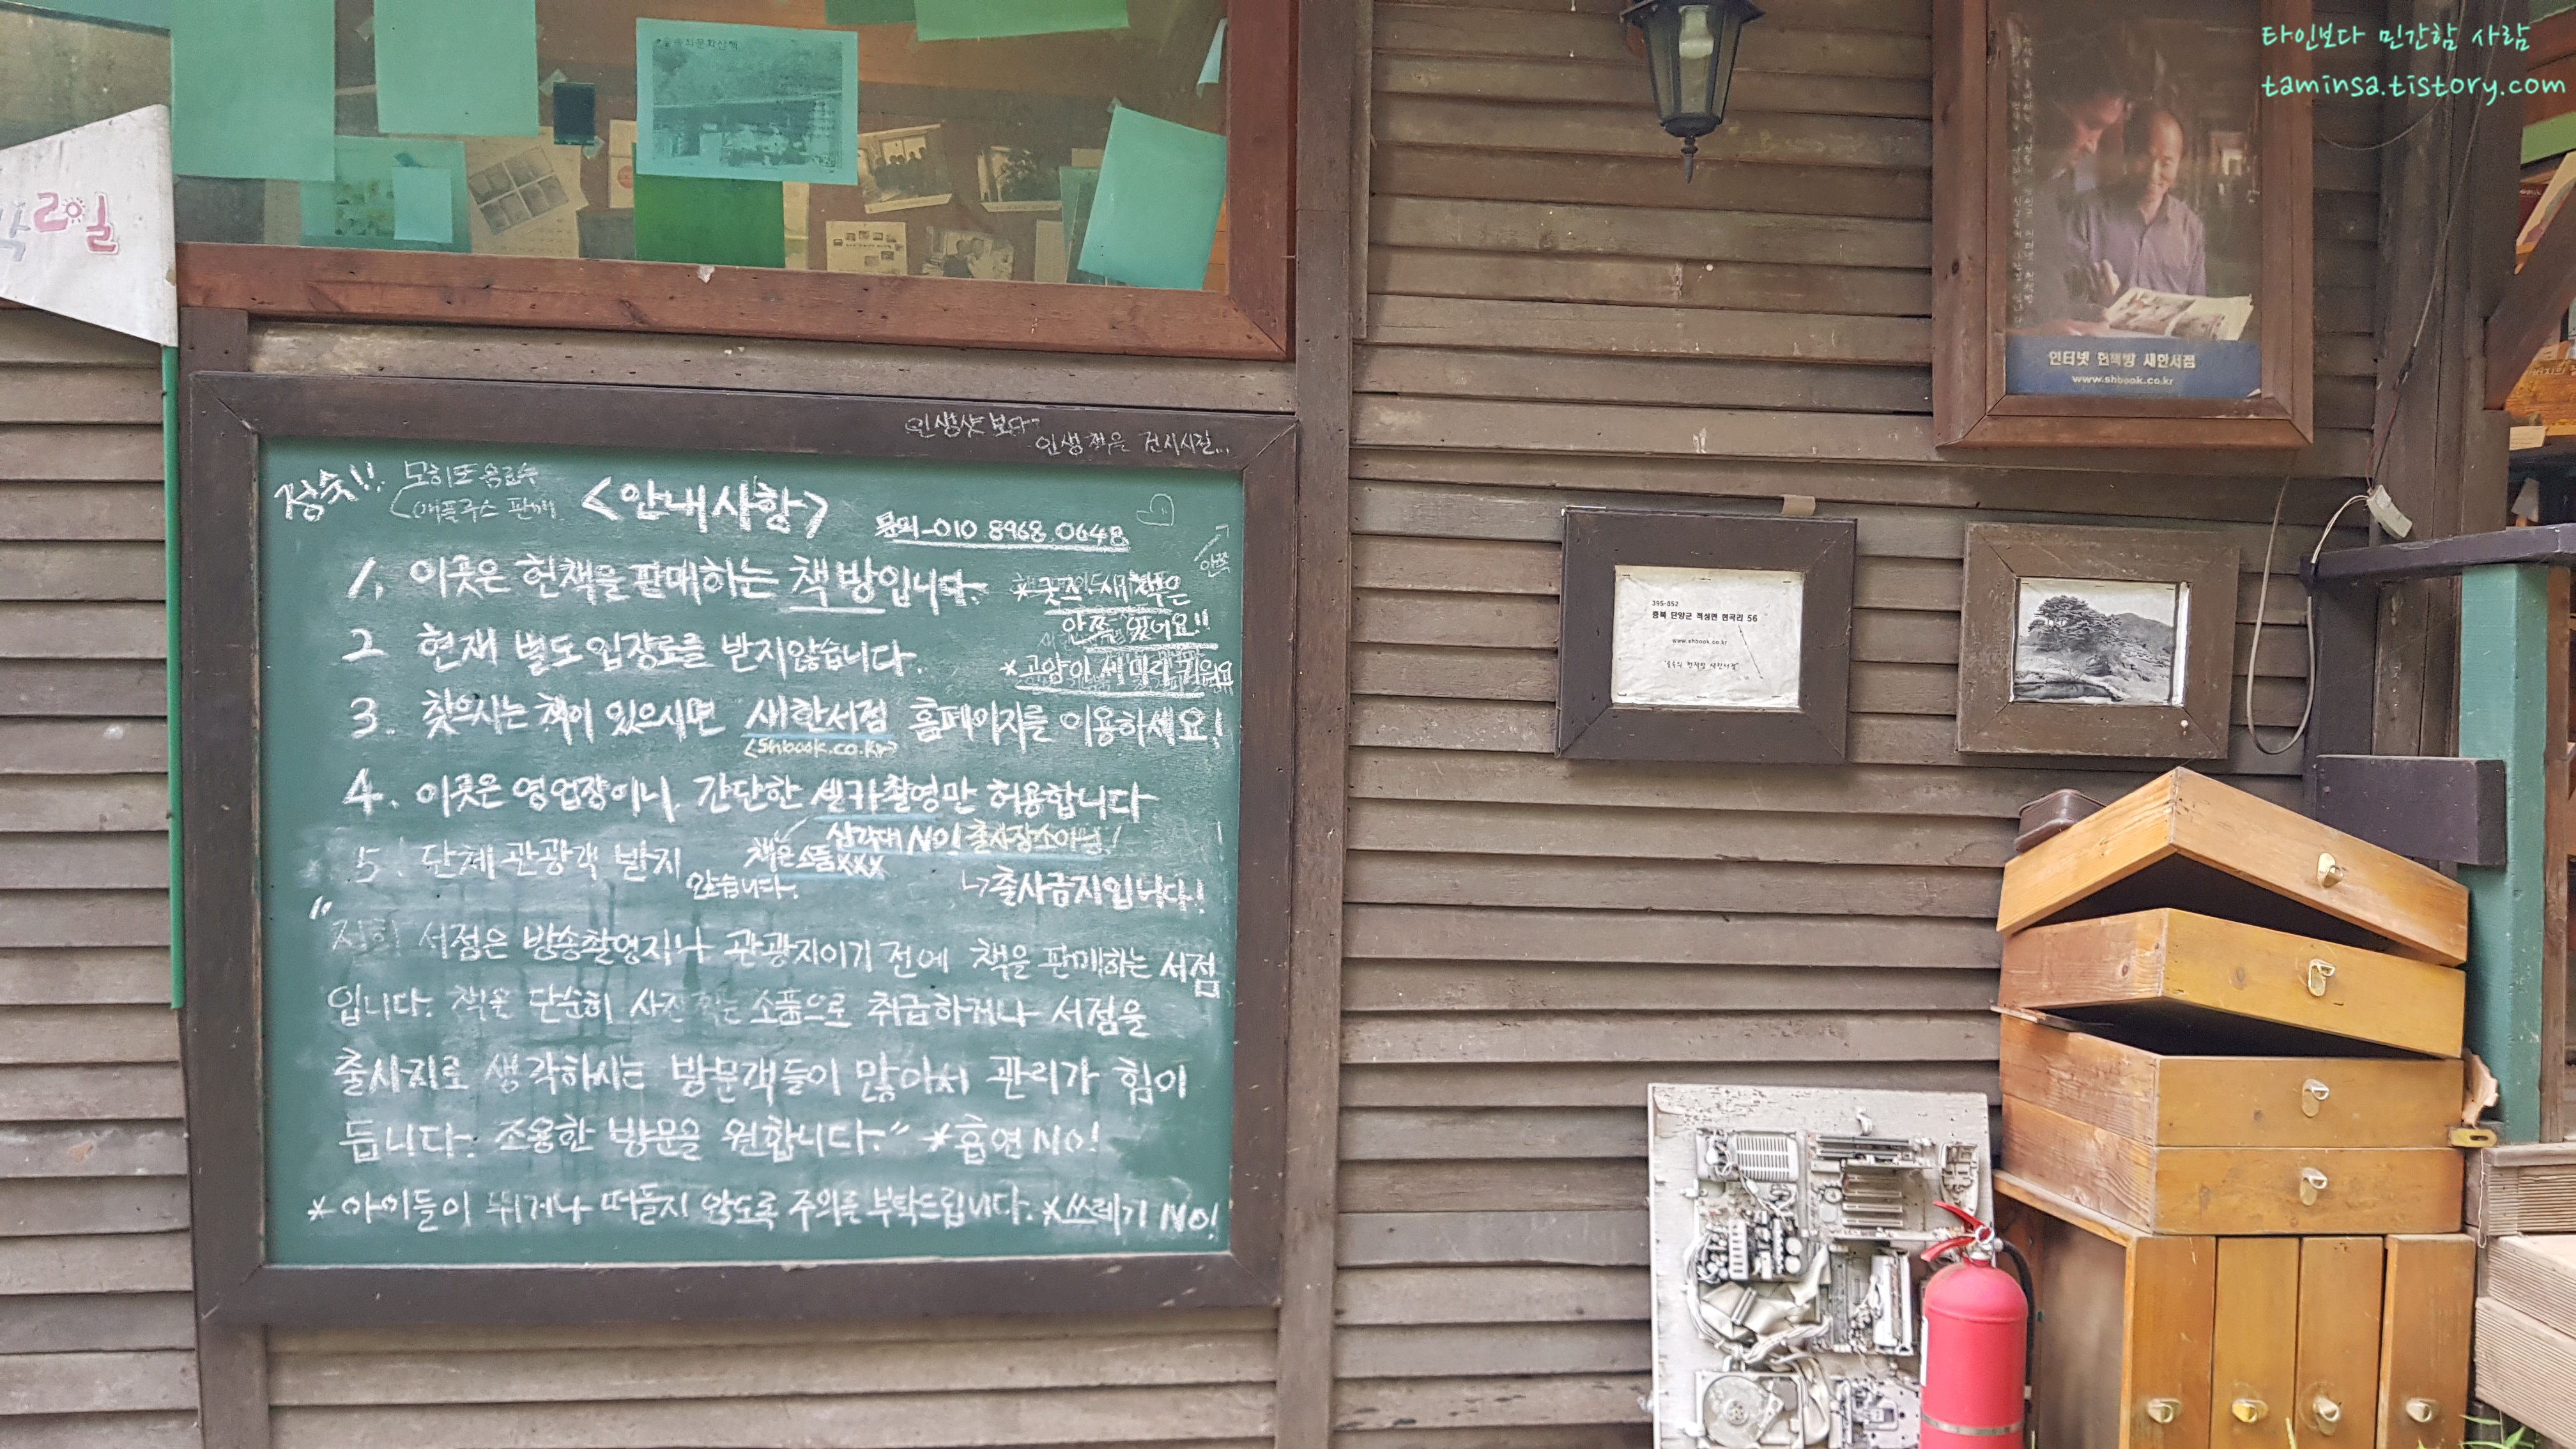 타인보다 민간함 사람
taminsa.tistory.com
인터넷 헌책방 새한서점
www.shbook.co.kr
인생샷 보다
인생책을 건지시길...
정숙!!
모히또 음료수
<안내사항>
문의-010 8968 0648
안쪽
1. 이곳은 헌책을 판매하는 책방입니다.
*굿즈, 새책은
안쪽 있어요!!
2 현재 별도 입장료를 받지않습니다.
3. 찾으시는 책이 있으시면 새한서점 홈페이지를 이용하세요!
<shbook.co.kr>
4. 이곳은 영업장이니 간단한 셀카촬영만 허용합니다
삼각대 NO! 출사장소아님!
책은소품XXX
↳출사금지입니다!
5. 단체 관광객 받지 않습니다.
"저희 서점은 방송촬영지나 관광지이기 전에 책을 판매하는 서점
입니다. 책을 단순히 사진 찍는 소품으로 취급하거나 서점을
출사지로 생각하시는 방문객들이 많아서 관리가 힘이
듭니다. 조용한 방문을 원합니다." *흡연 NO!
*아이들이 뛰거나 떠들지 않도록 주의를 부탁드립니다. *쓰레기 NO!
395-852
충북 단양군 적성면 현곡리 56
www.shbook.co.kr
"숲속의 헌책방 새한서점"